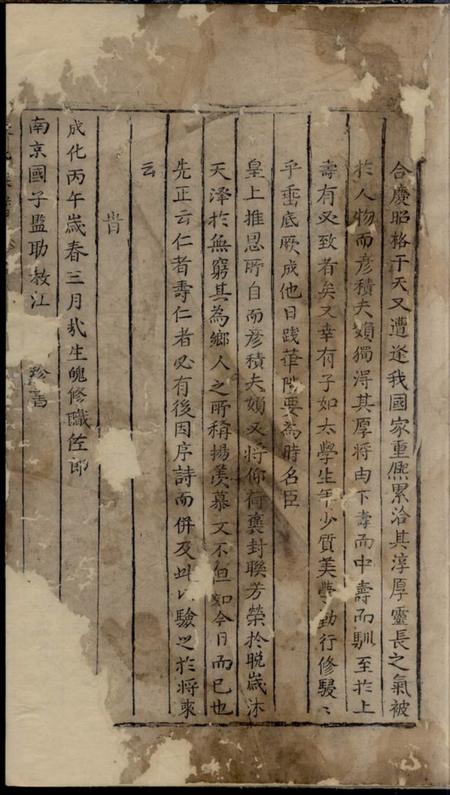 合慶昭格于天又遭逢我國家重熈累洽其淳厚靈長之氣被
於人物而彦積夫婦獨得其厚将由下壽而中壽而馴至於上
壽有又致者矣又幸有子如太學生年少質美學勤行修駸〻
乎垂底厥成他日踐華陟要為時名臣
皇上推恩所自而彦積夫婦又将仰荷褒封聮芳榮於晚歲沐
天澤於無窮其為鄉人之所稱揚羡慕又不但如今日而已也
先正云仁者壽仁者必有後因序詩而併及此以驗之於将來
云
旹
成化丙午歲春三月哉生魄修職佐郎
南京國子監助教江 珍書